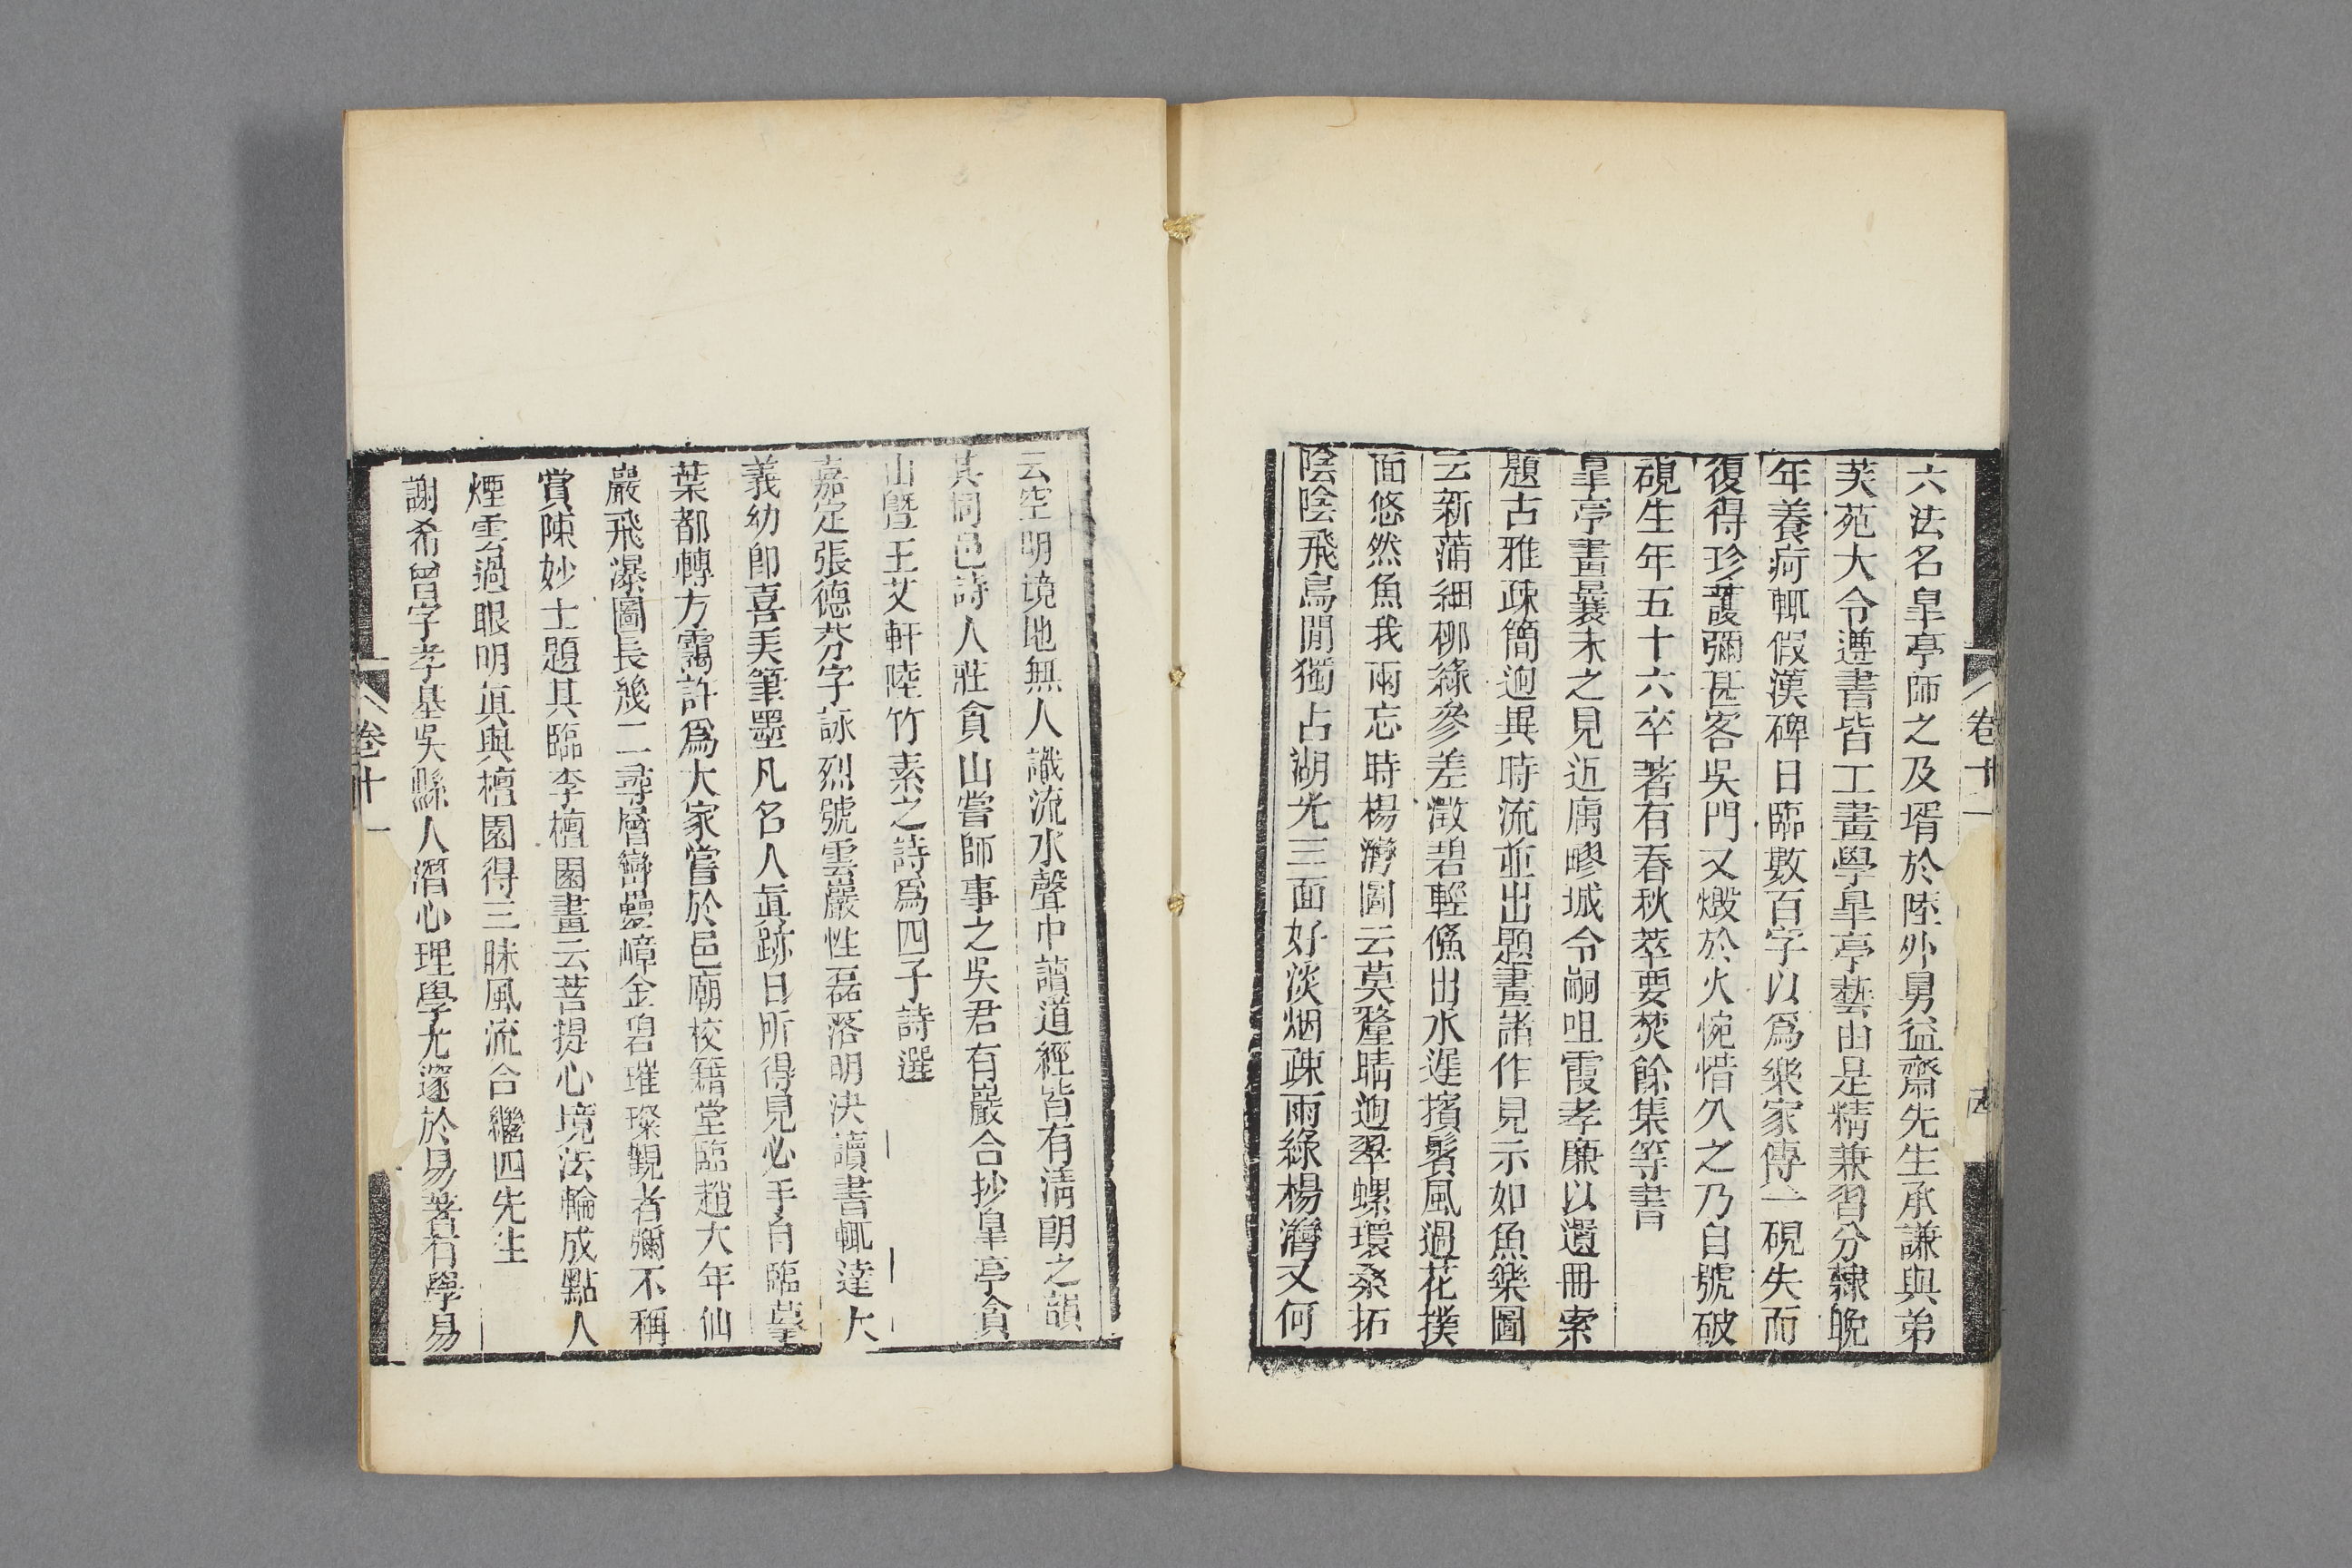 六法名皐亭師之及壻於陸外舅益齋先生承謙與弟
芙苑大令遵書皆工畫學皐亭藝由是精兼習分隸晚
年養疴輒假漢碑日臨數百字以爲樂家傳一硯失而
復得珍蘐彌甚客吳門又燬於火惋惜久之乃自號破
硯生年五十六卒著有春秋萃要焚餘集等書
皐亭畫曩未之見近膺疁城令嗣咀霞孝廉以遺冊索
題古雅疎簡逈異時流並出題畫諸作見示如魚樂圖
云新蒲細柳綠參差澂碧輕鯈出水遲擯鬐風過花撲
面悠然魚我兩忘時楊灣圖云莫釐晴逈翠螺環桑拓
陰陰飛鳥閒獨占湖光三面好淡烟疎雨綠楊灣又何
卷十一
西
云空明境地無人識流水聲中讀道經皆有淸朗之韻
其同邑詩人莊貪山嘗師事之吳君有巖合抄皐亭貪
山曁王艾軒陸竹素之詩爲四子詩選
嘉定張德芬字詠烈號雲巖性磊落明決讀書輒達大
義幼即喜弄筆墨凡名人眞跡日所得見必手自臨摹
葉都轉方靄許爲大家嘗於邑廟校籍堂臨趙大年仙
巖飛瀑圖長幾二尋層巒疊嶂金碧璀璨觀者彌不稱
賞陳妙士題其臨李檀園畫云菩提心境法輪成點人
煙雲過眼明眞與檀園得三昧風流合繼四先生
謝希曾字孝基吳縣人潛心理學尤邃於易著有學易
卷十一